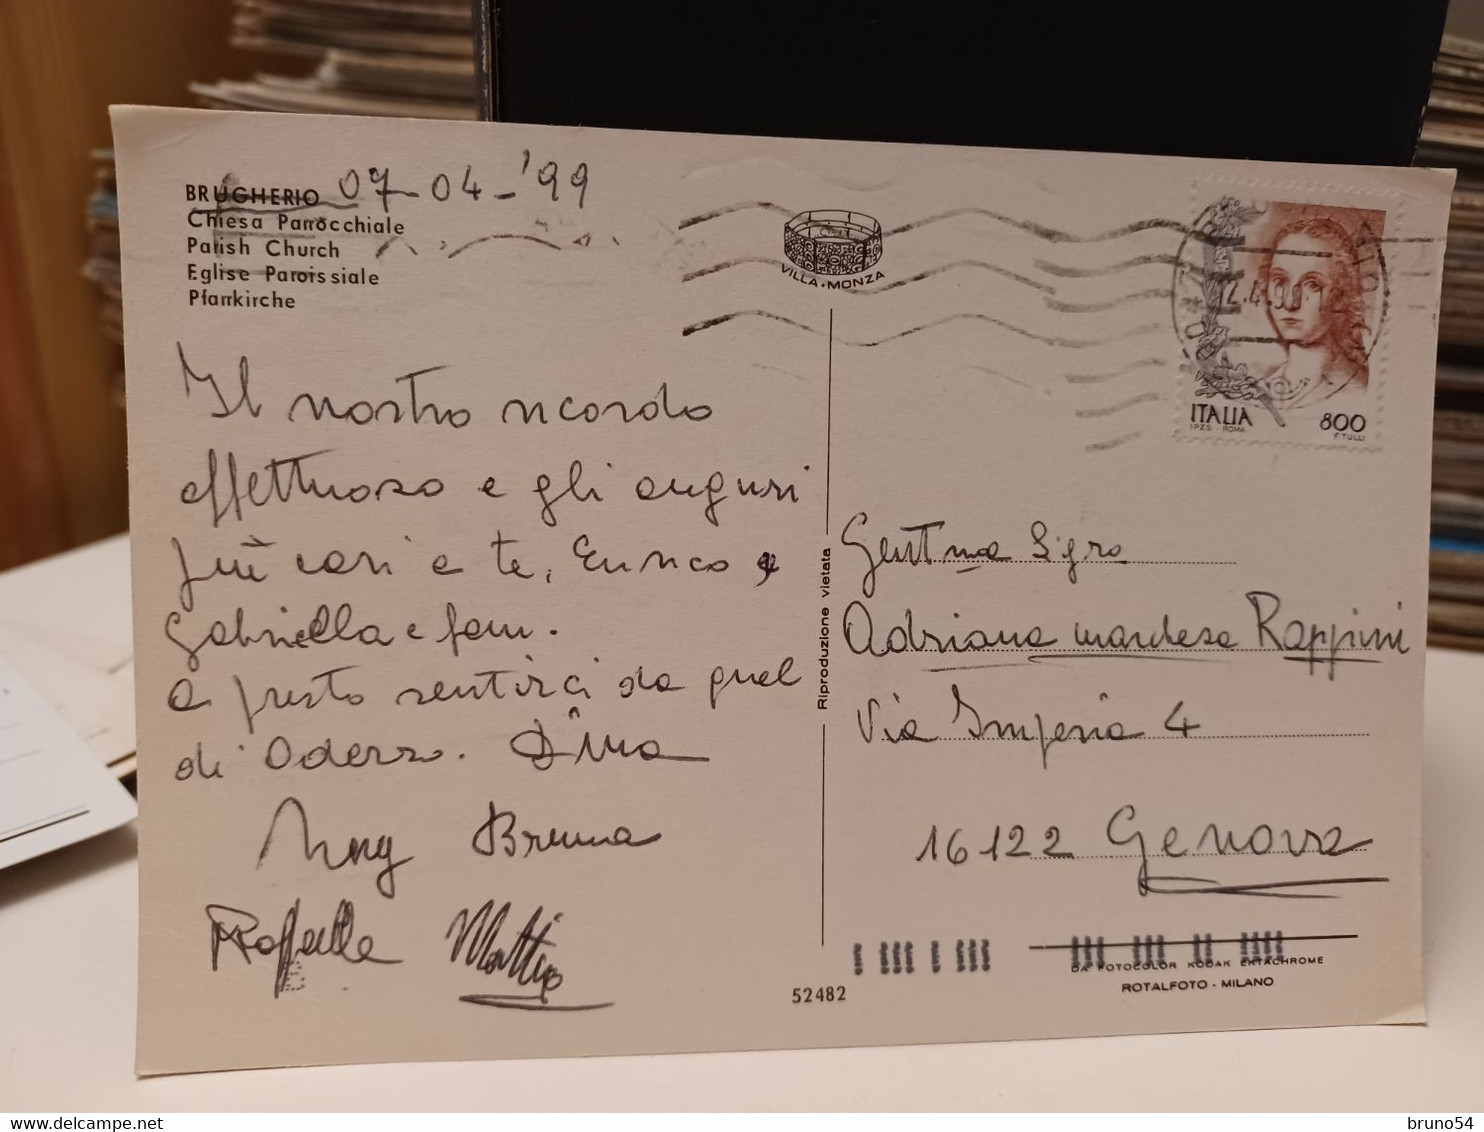 BRUGHERIO 07-04-'99
Chiesa Parrocchiale
Parish Church
Eglise Paroissiale
Pfarrkirche
VILLA · MONZA
ITALIA 800
I.P.Z.S. - ROMA F. TULLI
Il nostro ricordo
affettuoso e gli auguri
più cari a te, Enrico e
Gabriella e fam.
a presto sentirci da quel
di Oderzo. Dina
Bruna
Raffaella Mattia
Riproduzione vietata
Gent.ma Sig.ra
Adriana Rappini
Via Imperia 4
16122 Genova
DA FOTOCOLOR KODAK EKTACHROME
ROTALFOTO - MILANO
52482
bruno54